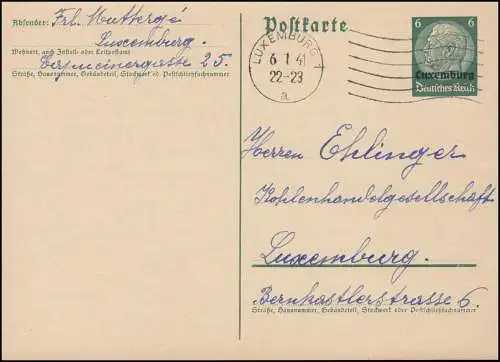 Absender: Frl. Wutterge
Luxemburg.
Wohnort, auch Zustell- oder Leitpostamt
25.
Straße, Hausnummer, Gebäudeteil, Stockwerk od. Postschließfachnummer
Postkarte
LUXEMBURG 1
6 1 41
22-23
a
6 6
Luxemburg
Deutsches Reich
Herren Ehlinger
Kohlenhandelgesellschaft
Luxemburg.
Bernkastlerstrasse 6.
Straße, Hausnummer, Gebäudeteil, Stockwerk oder Postschließfachnummer